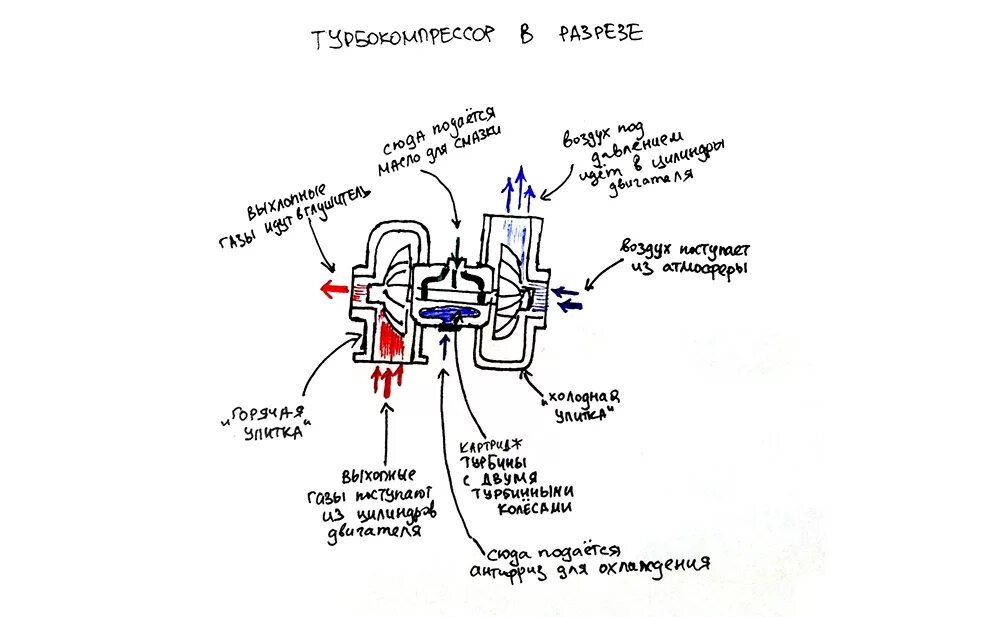 ТУРБОКОМПРЕССОР В РАЗРЕЗЕ
СЮДА ПОДАЁТСЯ
МАСЛО ДЛЯ СМАЗКИ
ВОЗДУХ ПОД
ДАВЛЕНИЕМ
ИДЁТ В ЦИЛИНДРЫ
ДВИГАТЕЛЯ
ВЫХЛОПНЫЕ
ГАЗЫ ИДУТ В ГЛУШИТЕЛЬ
ВОЗДУХ ПОСТУПАЕТ
ИЗ АТМОСФЕРЫ
"ГОРЯЧАЯ
УЛИТКА"
"ХОЛОДНАЯ
УЛИТКА"
КАРТРИДЖ
ТУРБИНЫ
С ДВУМЯ
ТУРБИННЫМИ
КОЛЁСАМИ
ВЫХОПНЫЕ
ГАЗЫ ПОСТУПАЮТ
ИЗ ЦИЛИНДРОВ
ДВИГАТЕЛЯ
СЮДА ПОДАЁТСЯ
АНТИФРИЗ ДЛЯ ОХЛАЖДЕНИЯ